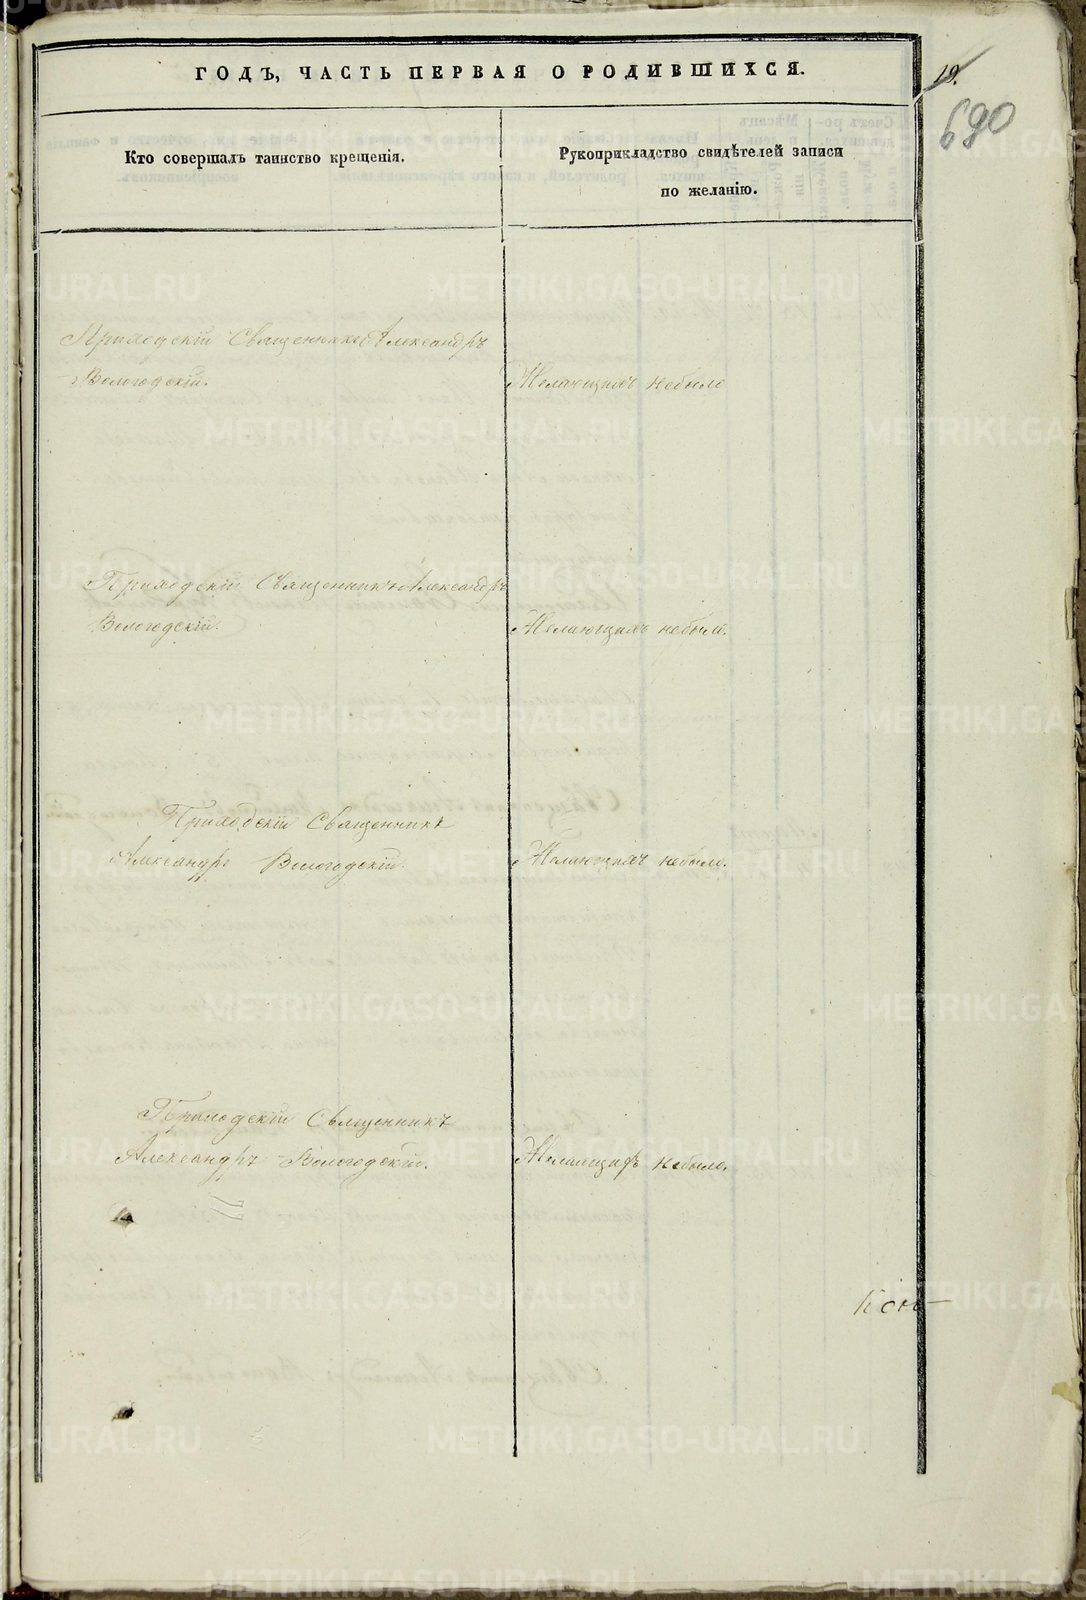 ГОДЪ, ЧАСТЬ ПЕРВАЯ О РОДИВШИХСЯ.
19.
690
Кто совершалъ таинство крещенія.
Рукоприкладство свидѣтелей записи
по желанію.
Приходскій Священникъ Александръ
Вологодскій.
Желающихъ небыло
Приходскій Священникъ Александръ
Вологодскій.
Желающихъ небыло.
Приходскій Священникъ
Александръ Вологодскій.
Желающихъ небыло.
Приходскій Священникъ
Александръ Вологодскій.
Желающихъ небыло.
METRIKI.GASO-URAL.RU